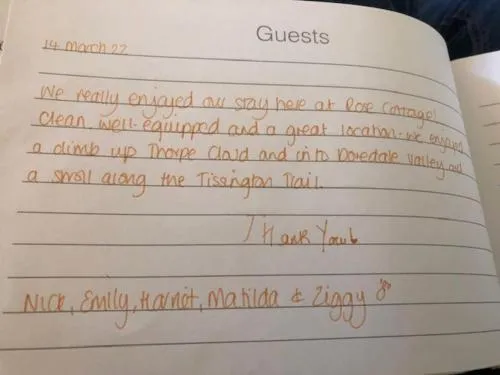 Guests
14 March 22
We really enjoyed our stay here at Rose Cottage!
Clean, well-equipped and a great location - we enjoyed
a climb up Thorpe Cloud and into Dovedale Valley and
a stroll along the Tissington Trail.
Thank You!
Nick, Emily, Harriot, Matilda & Ziggy